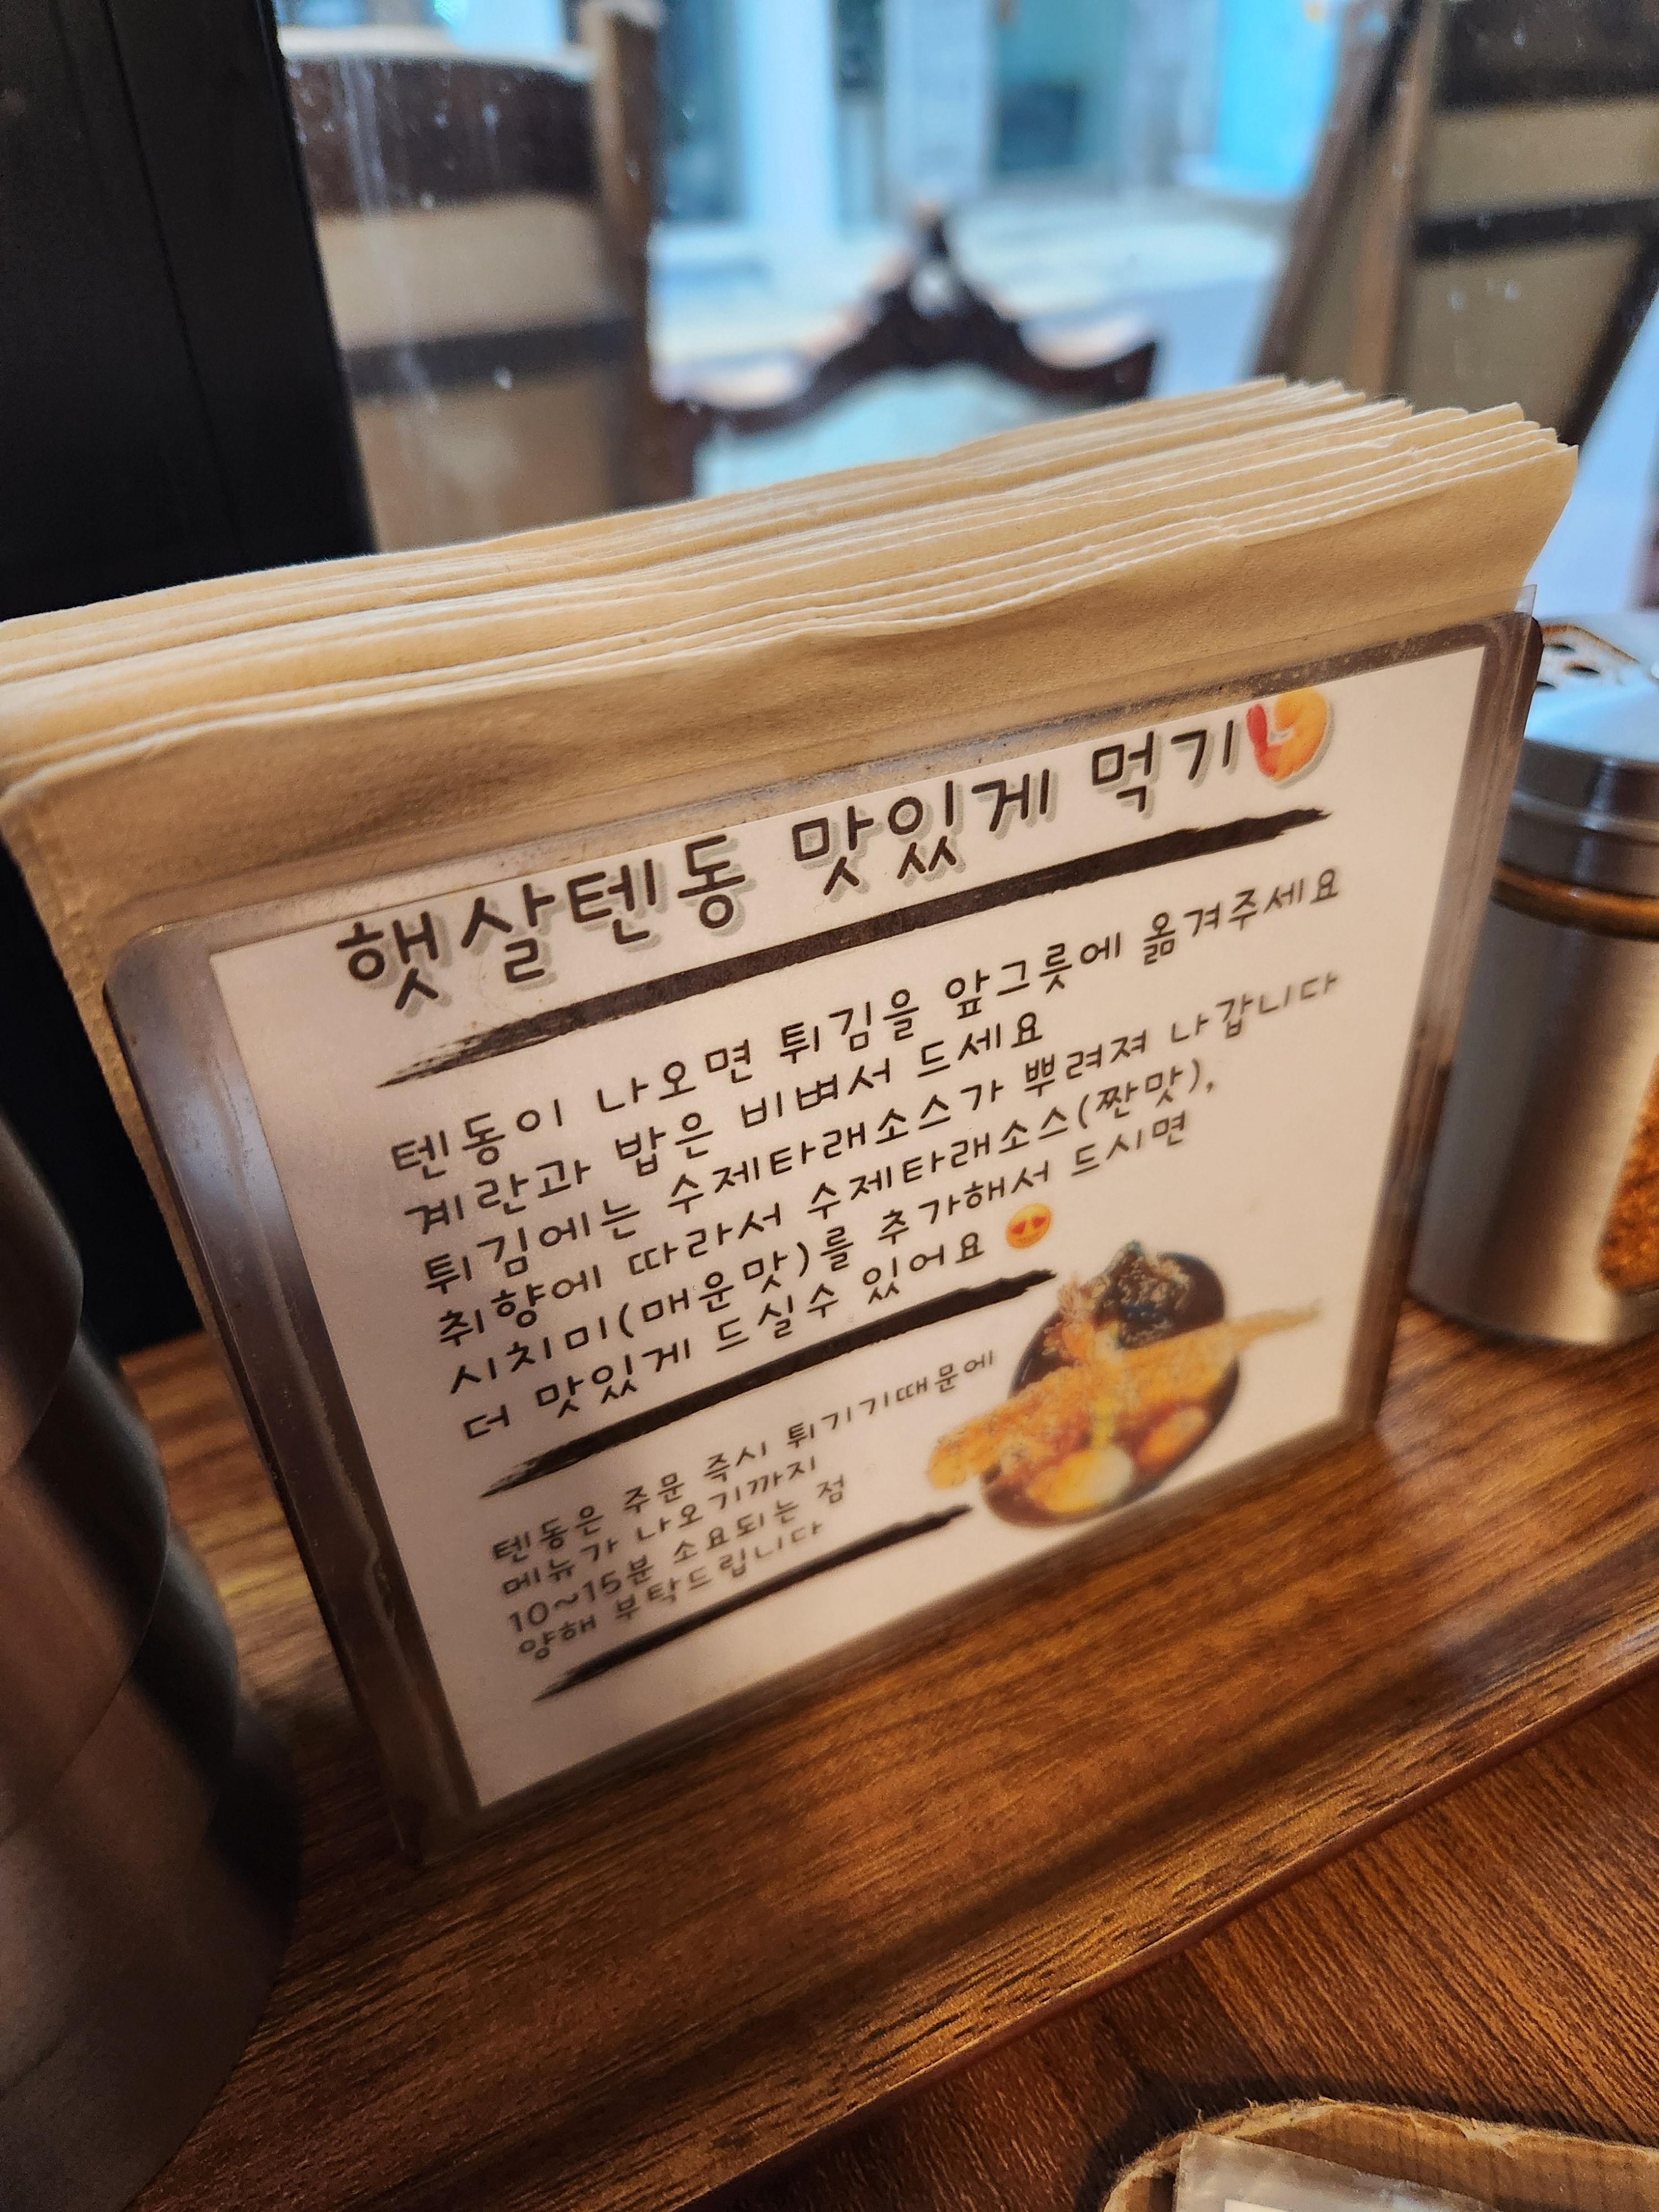 햇살텐동 맛있게 먹기
텐동이 나오면 튀김을 앞그릇에 옮겨주세요
계란과 밥은 비벼서 드세요
튀김에는 수제타래소스가 뿌려져 나갑니다
취향에 따라서 수제타래소스(짠맛),
시치미(매운맛)를 추가해서 드시면
더 맛있게 드실수 있어요 😍
텐동은 주문 즉시 튀기기때문에
메뉴가 나오기까지
10~15분 소요되는 점
양해 부탁드립니다